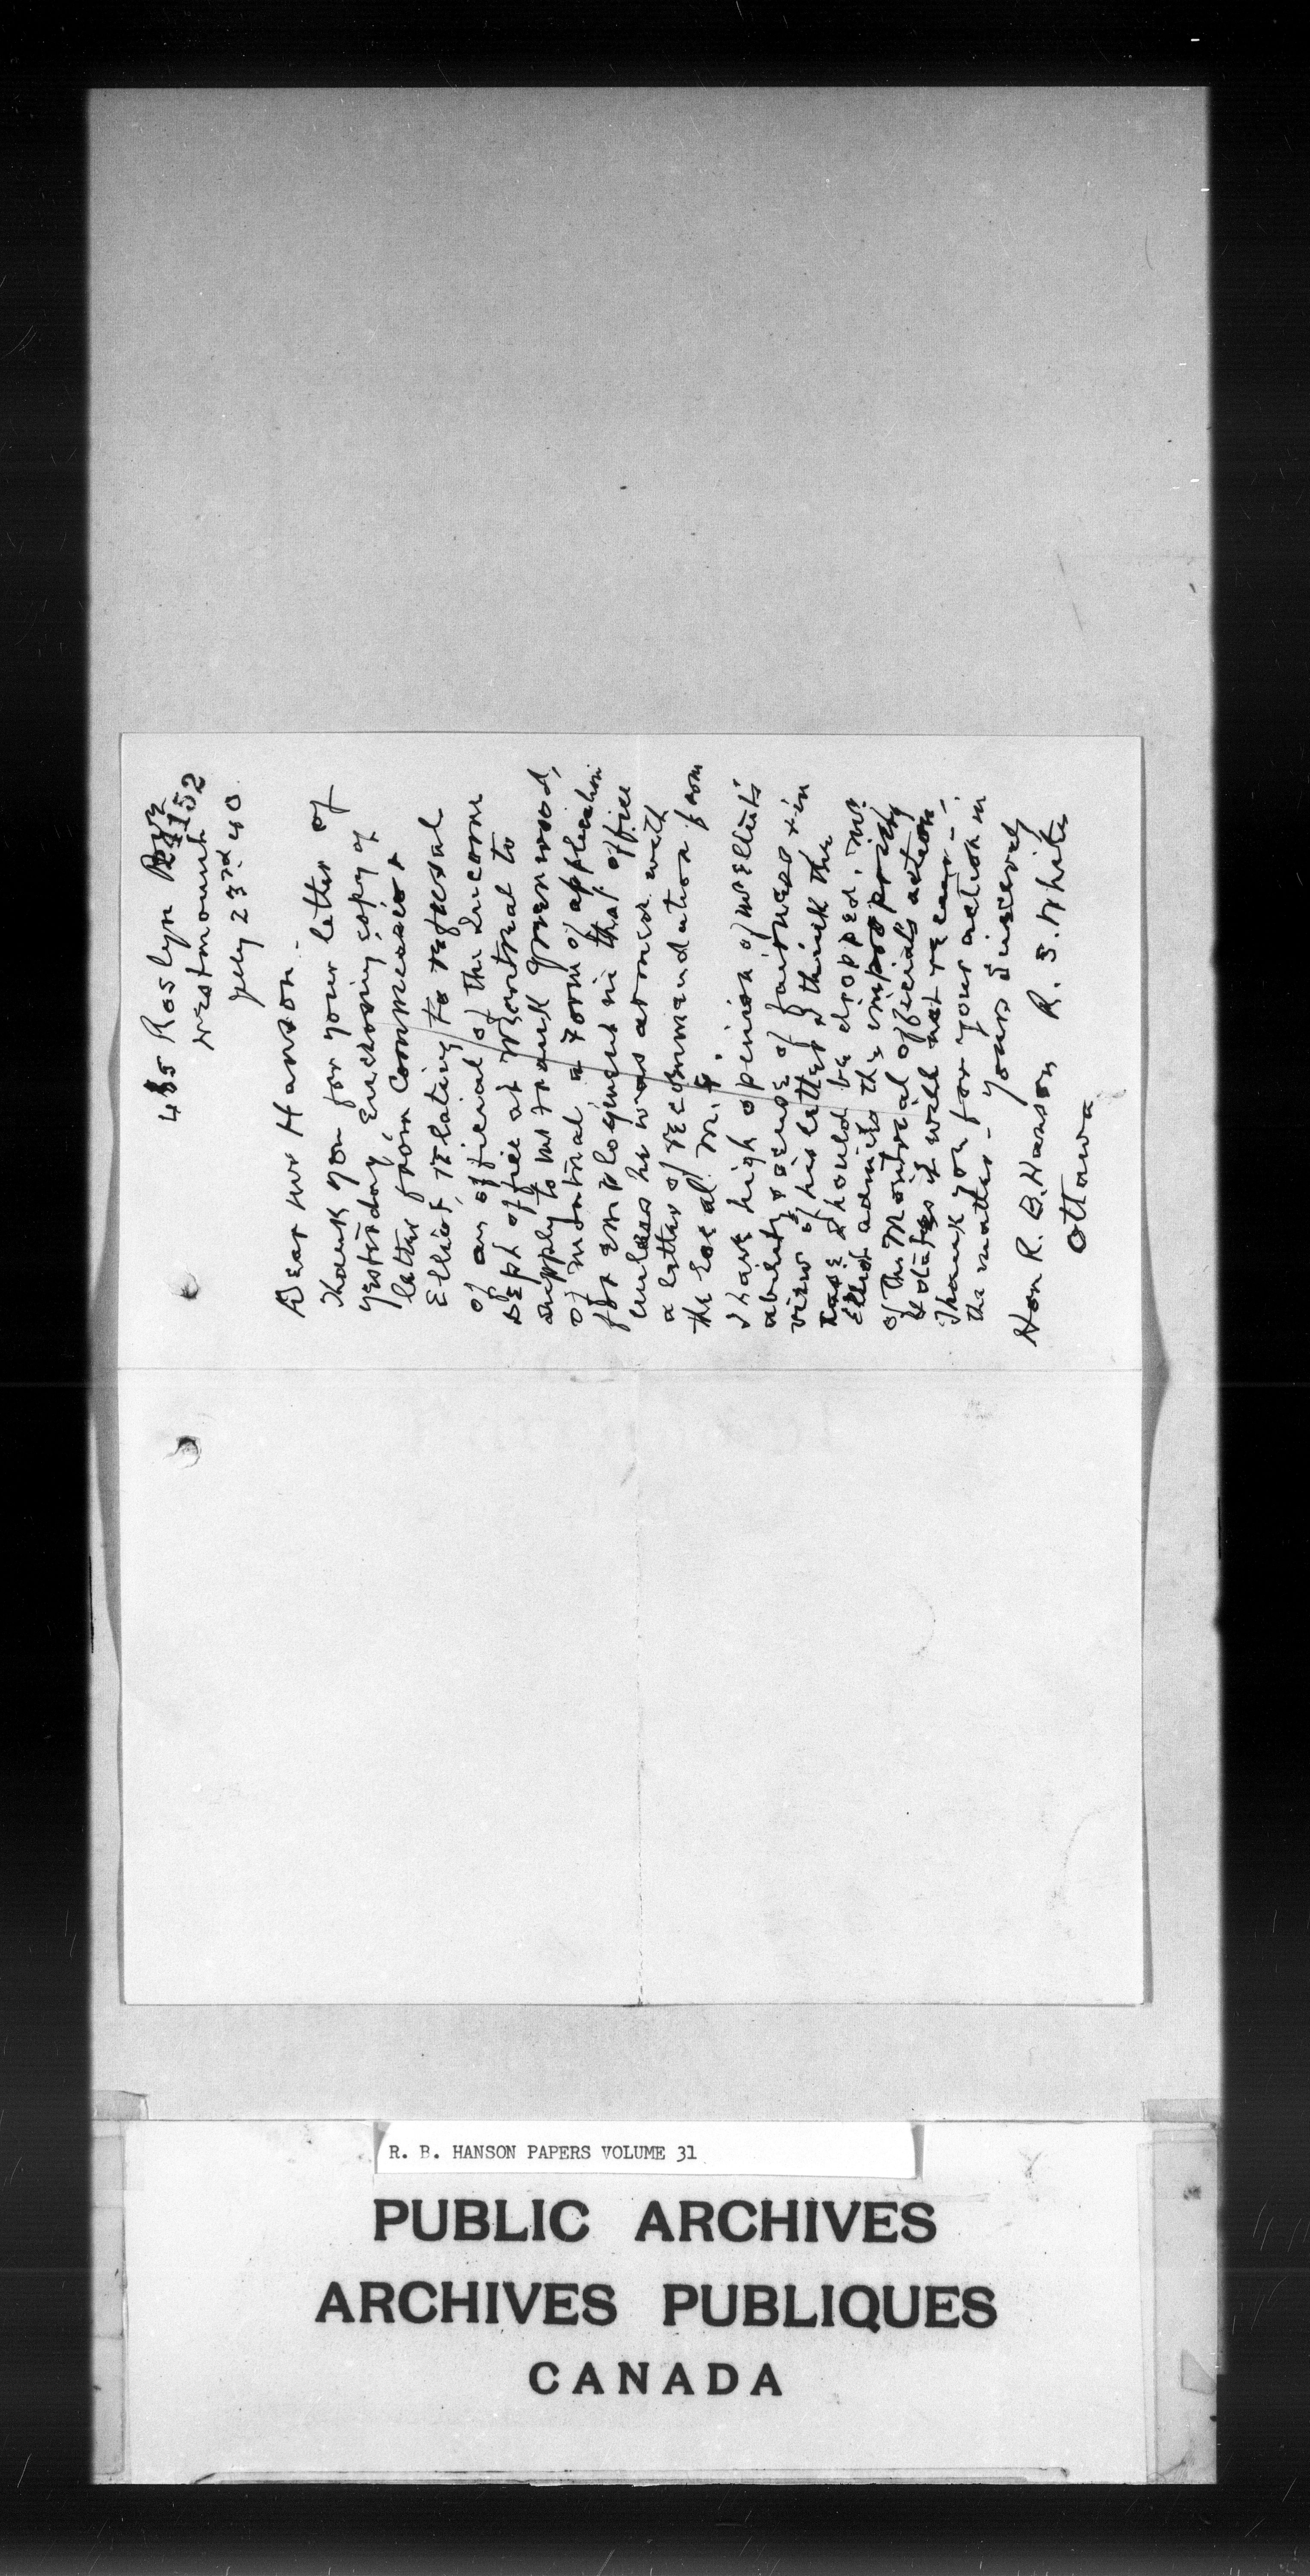 485 Roslyn Ave
24152
Westmount
July 23rd 40
Dear Mr Hanson
Thank you for your letter of
yesterday enclosing copy of
letter from Commissioner
Elliot, relating to refusal
of an official of the Income
Dept office at Montreal to
supply to Mr Frank Greenwood,
of Montreal a form of application
for employment in that office
unless he was armed with
a letter of recommendation from
the local M.P.
I have high opinion of Mr Elliot's
ability & sense of fairness & in
view of his letter I think the
case should be dropped. Mr.
Elliot admits the impropriety
of the Montreal official's action
& states it will not recur —
Thank you for your action in
the matter — Yours sincerely
R. S. White
Hon R. B. Hanson
Ottawa
R. B. HANSON PAPERS VOLUME 31
PUBLIC ARCHIVES
ARCHIVES PUBLIQUES
CANADA